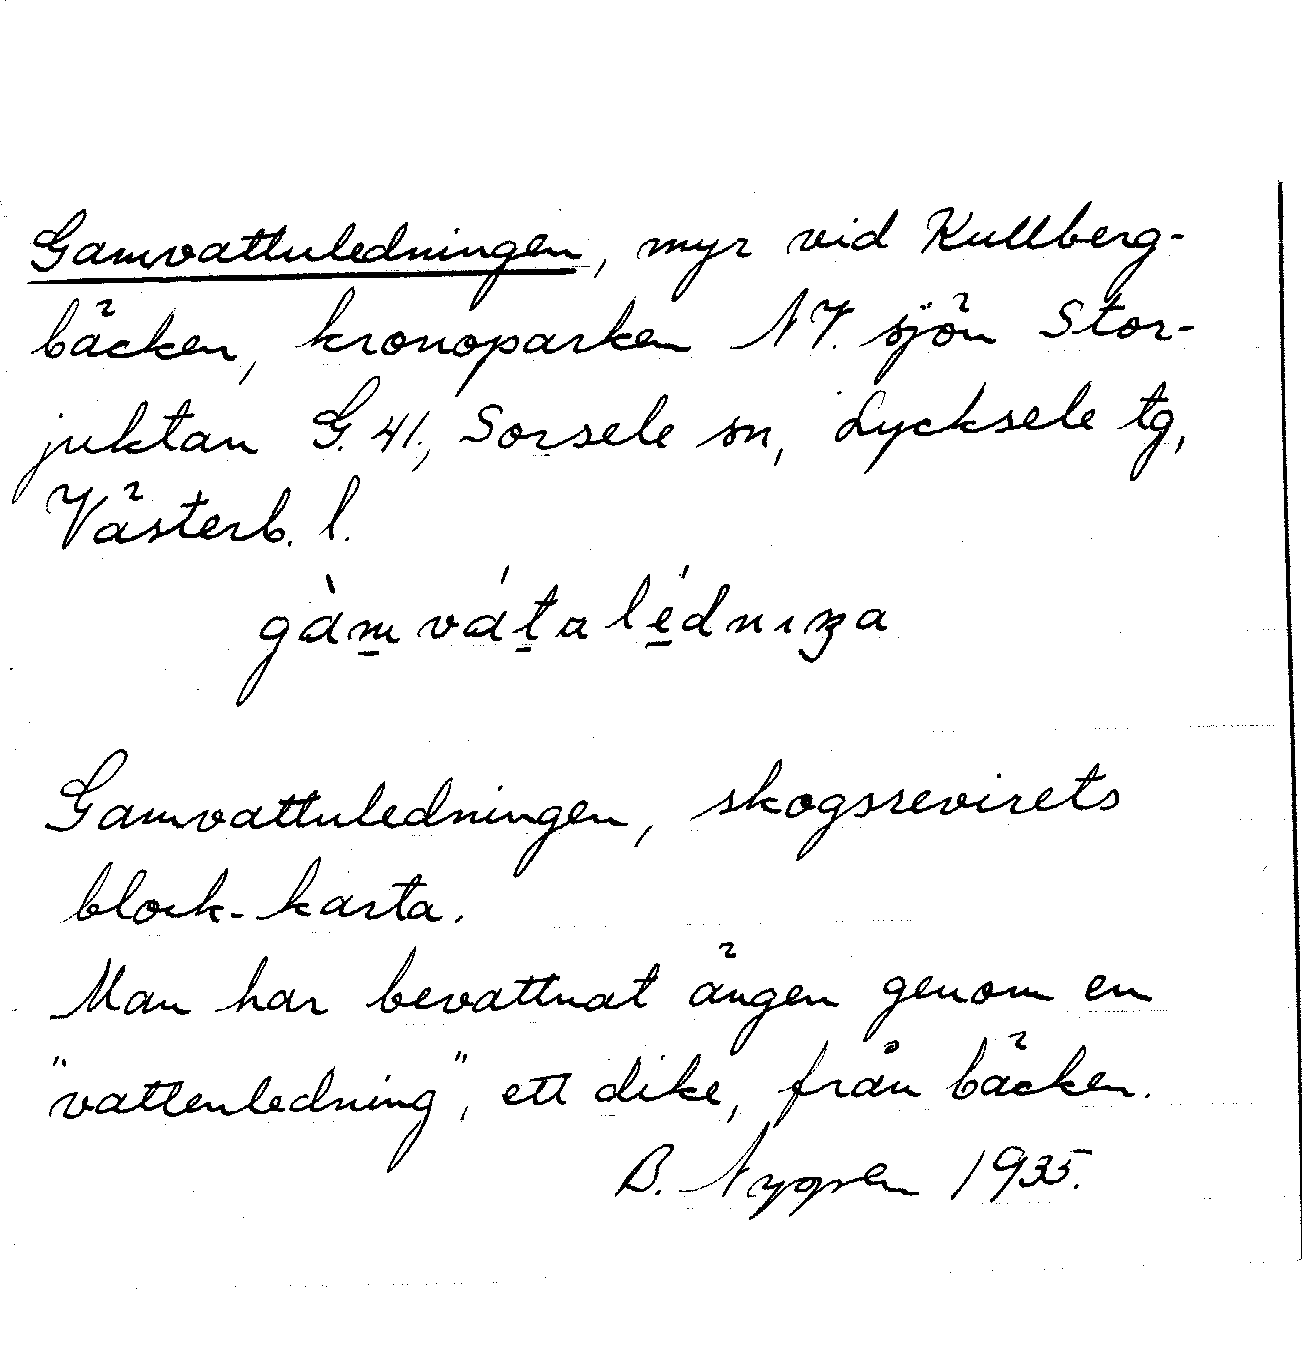 Gamvattuledningen, myr vid Kullberg-
bäcken, kronoparken NV. sjön Stor-
juktan G. 41., Sorsele sn, Lycksele tg,
Västerb. l.
gàm̱vát̠alé̠dnıŋa
Gamvattuledningen, skogsrevirets
block-karta.
Man har bevattnat ängen genom en
"vattenledning", ett dike, från bäcken.
B. 1935.